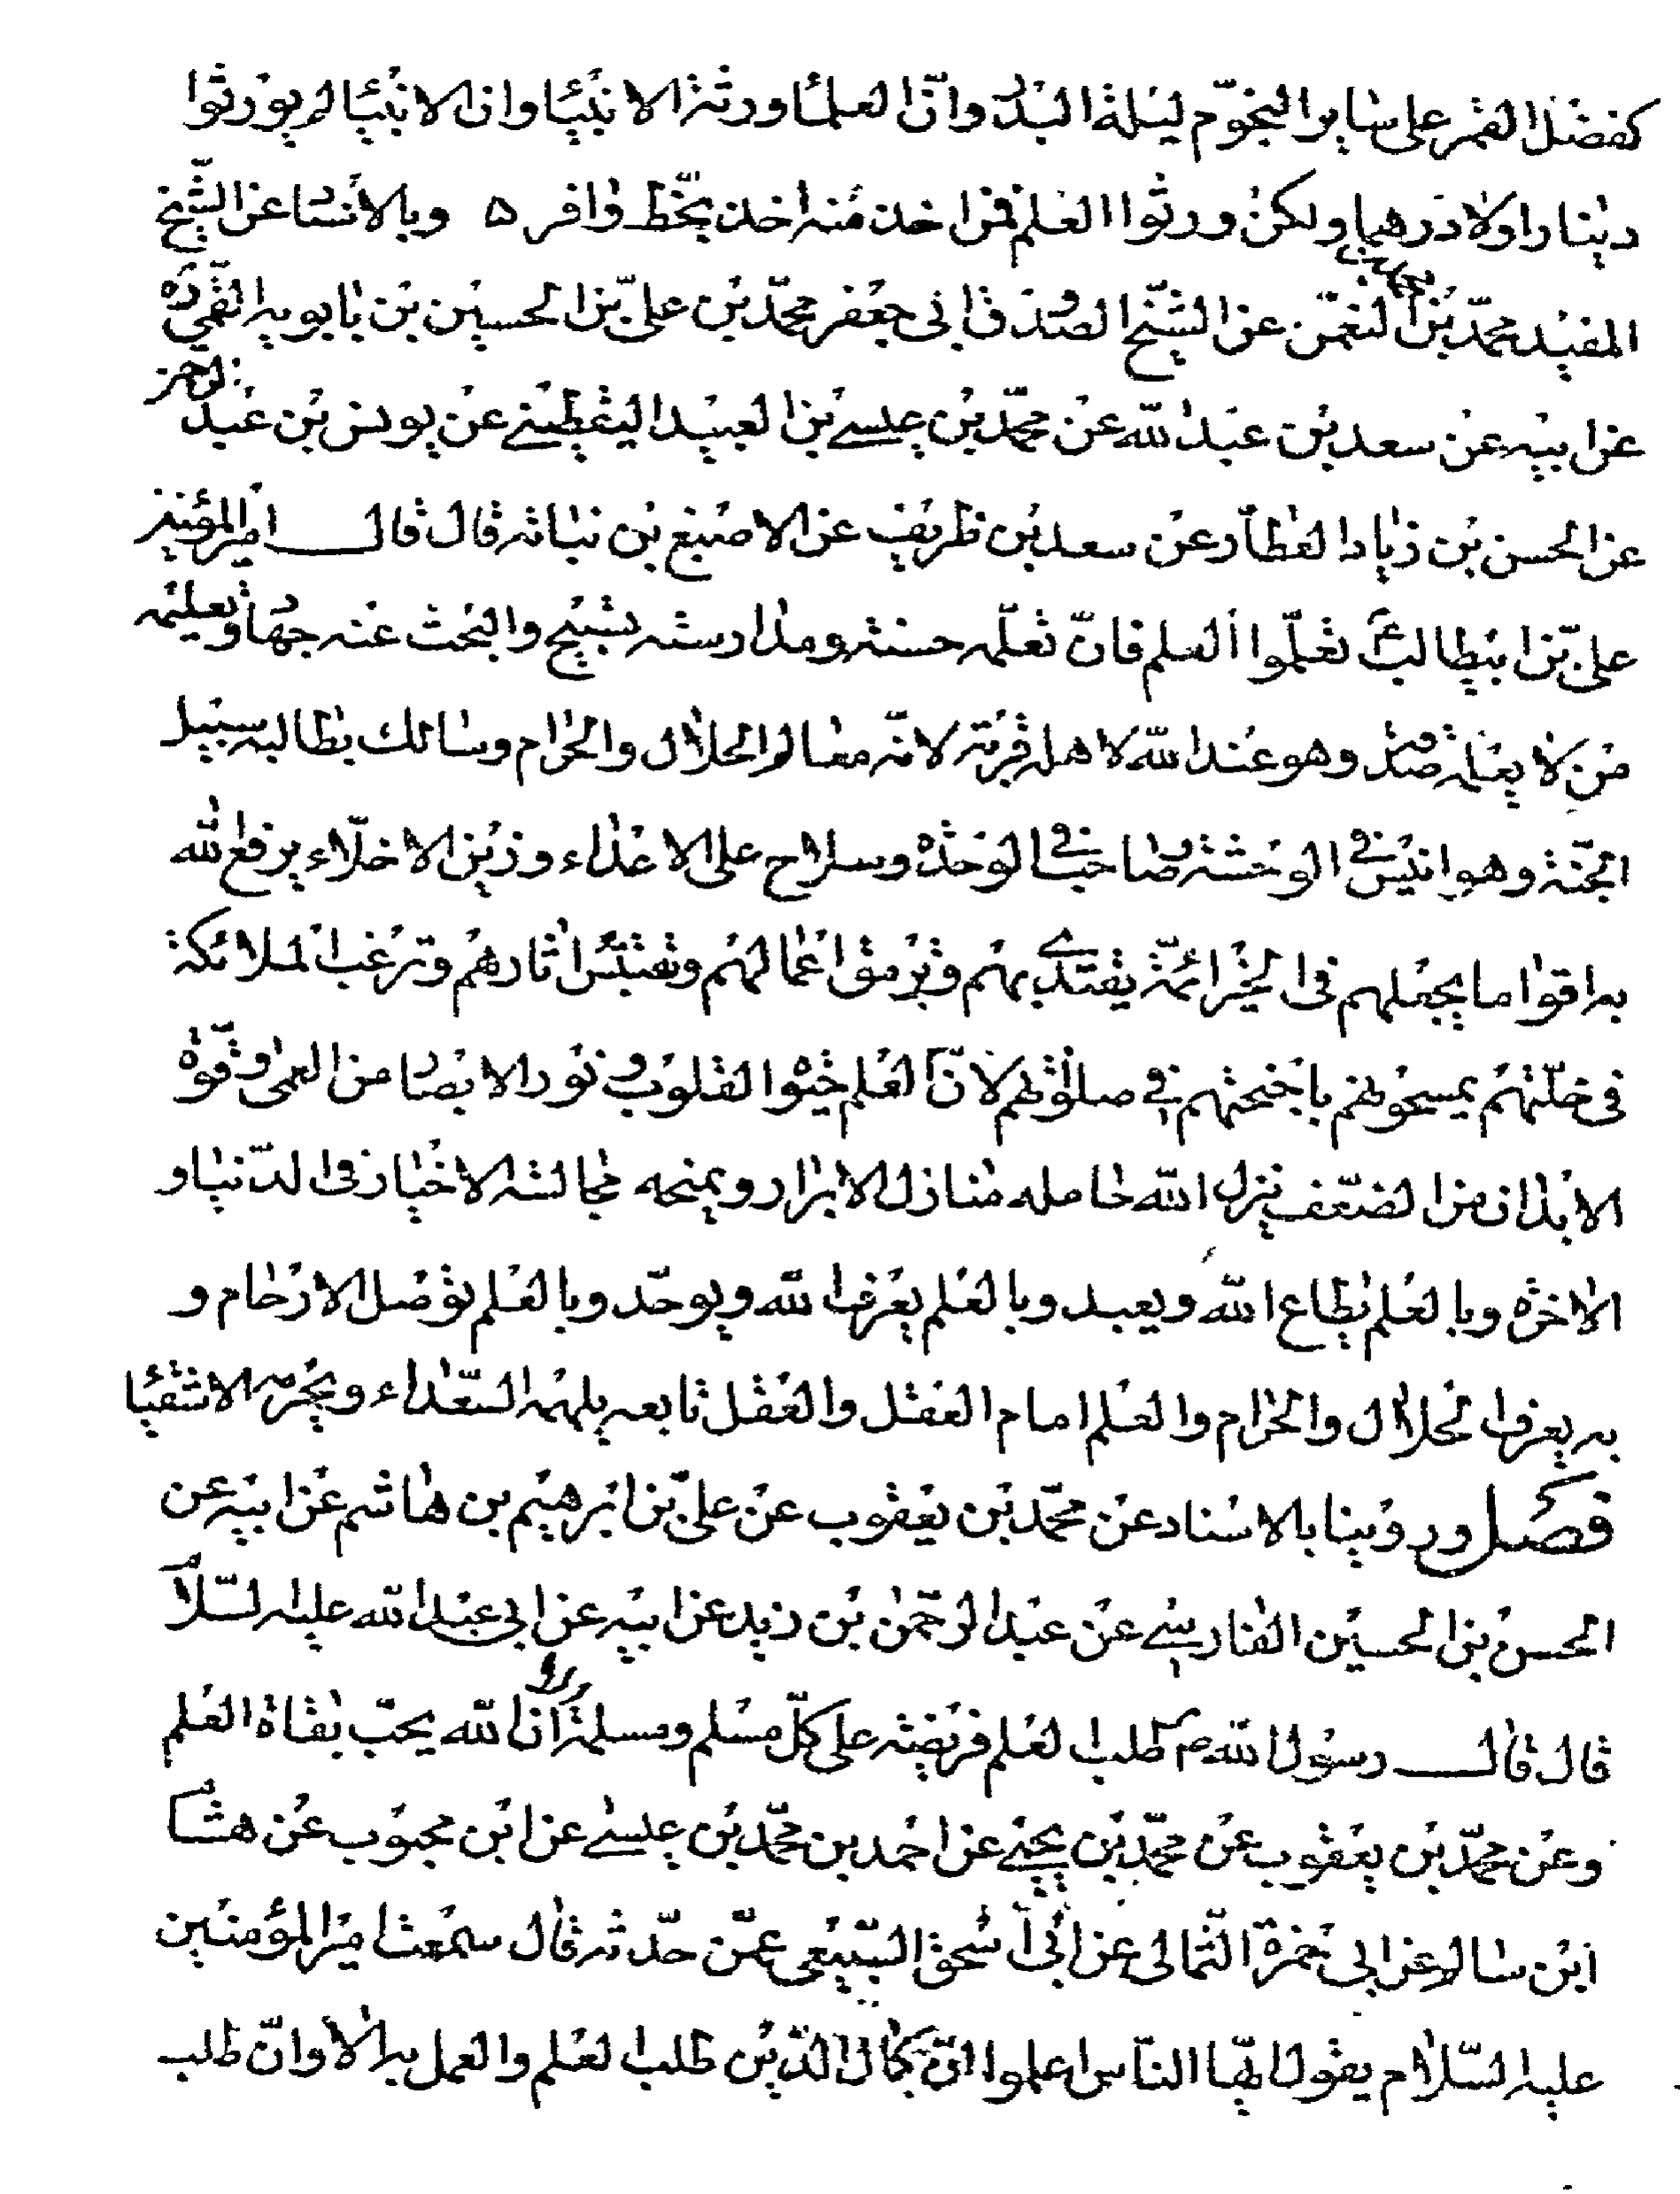 كفضل القمر على ساير النجوم ليلة البدر وان العلماء ورثة الانبياء وان الانبياء لم يورثوا
دينارا ولا درهما ولكن ورثوا العلم فمن اخذ منه اخذ بحظ وافر ه وبالاسناد عن الشيخ
المفيد محمد بن النعمن عن الشيخ الصدوق ابى جعفر محمد بن على بن الحسين بن بابويه القمى ره
عن ابيه عن سعد بن عبد الله عن محمد بن عيسى بن العبيد اليقطينى عن يونس بن عبد الرحمن
عن الحسن بن زياد العطار عن سعد بن ظريف عن الاصبغ بن نباته قال قال امير المؤمنين
على بن ابيطالب ع تعلموا العلم فان تعلمه حسنة ومدارسته تسبيح والبحث عنه جهاد وتعليمه
من لا يعلمه صدقة وهو عند الله لاهله قربة لانه معالم الحلال والحرام وسالك بطالبه سبيل
الجنة وهو انيس فى الوحشة وصاحب فى الوحدة وسلاح على الاعداء وزين الاخلاء يرفع الله
به اقواما يجعلهم فى الخير ائمة يقتدى بهم وترمق اعمالهم وتقتبس اثارهم وترغب الملائكة
فى خلتهم يمسحونهم باجنحتهم فى صلوتهم لان العلم حيوة القلوب ونور الابصار من العمى وقوة
الابدان من الضعف ينزل الله حامله منازل الابرار ويمنحه مجالسة الاخيار فى الدنيا و
الاخرة وبالعلم يطاع الله ويعبد وبالعلم يعرف الله ويوحد وبالعلم توصل الارحام و
به يعرف الحلال والحرام والعلم امام العقل والعقل تابعه يلهمه السعداء ويحرمه الاشقياء
فصل وروينا بالاسناد عن محمد بن يعقوب عن على بن ابرهيم بن هاشم عن ابيه عن
الحسن بن الحسين الفارسى عن عبد الرحمن بن زيد عن ابيه عن ابى عبد الله عليه السلام
قال قال رسول الله ص طلب العلم فريضة على كل مسلم ومسلمة ان الله يحب بغاة العلم
وعن محمد بن يعقوب عن محمد بن يحيى عن احمد بن محمد بن عيسى عن ابن محبوب عن هشام
ابن سالم عن ابى حمزة الثمالى عن ابى اسحق السبيعى عمن حدثه قال سمعت امير المؤمنين
عليه السلام يقول ايها الناس اعلموا ان كمال الدين طلب العلم والعمل به الا وان طلب